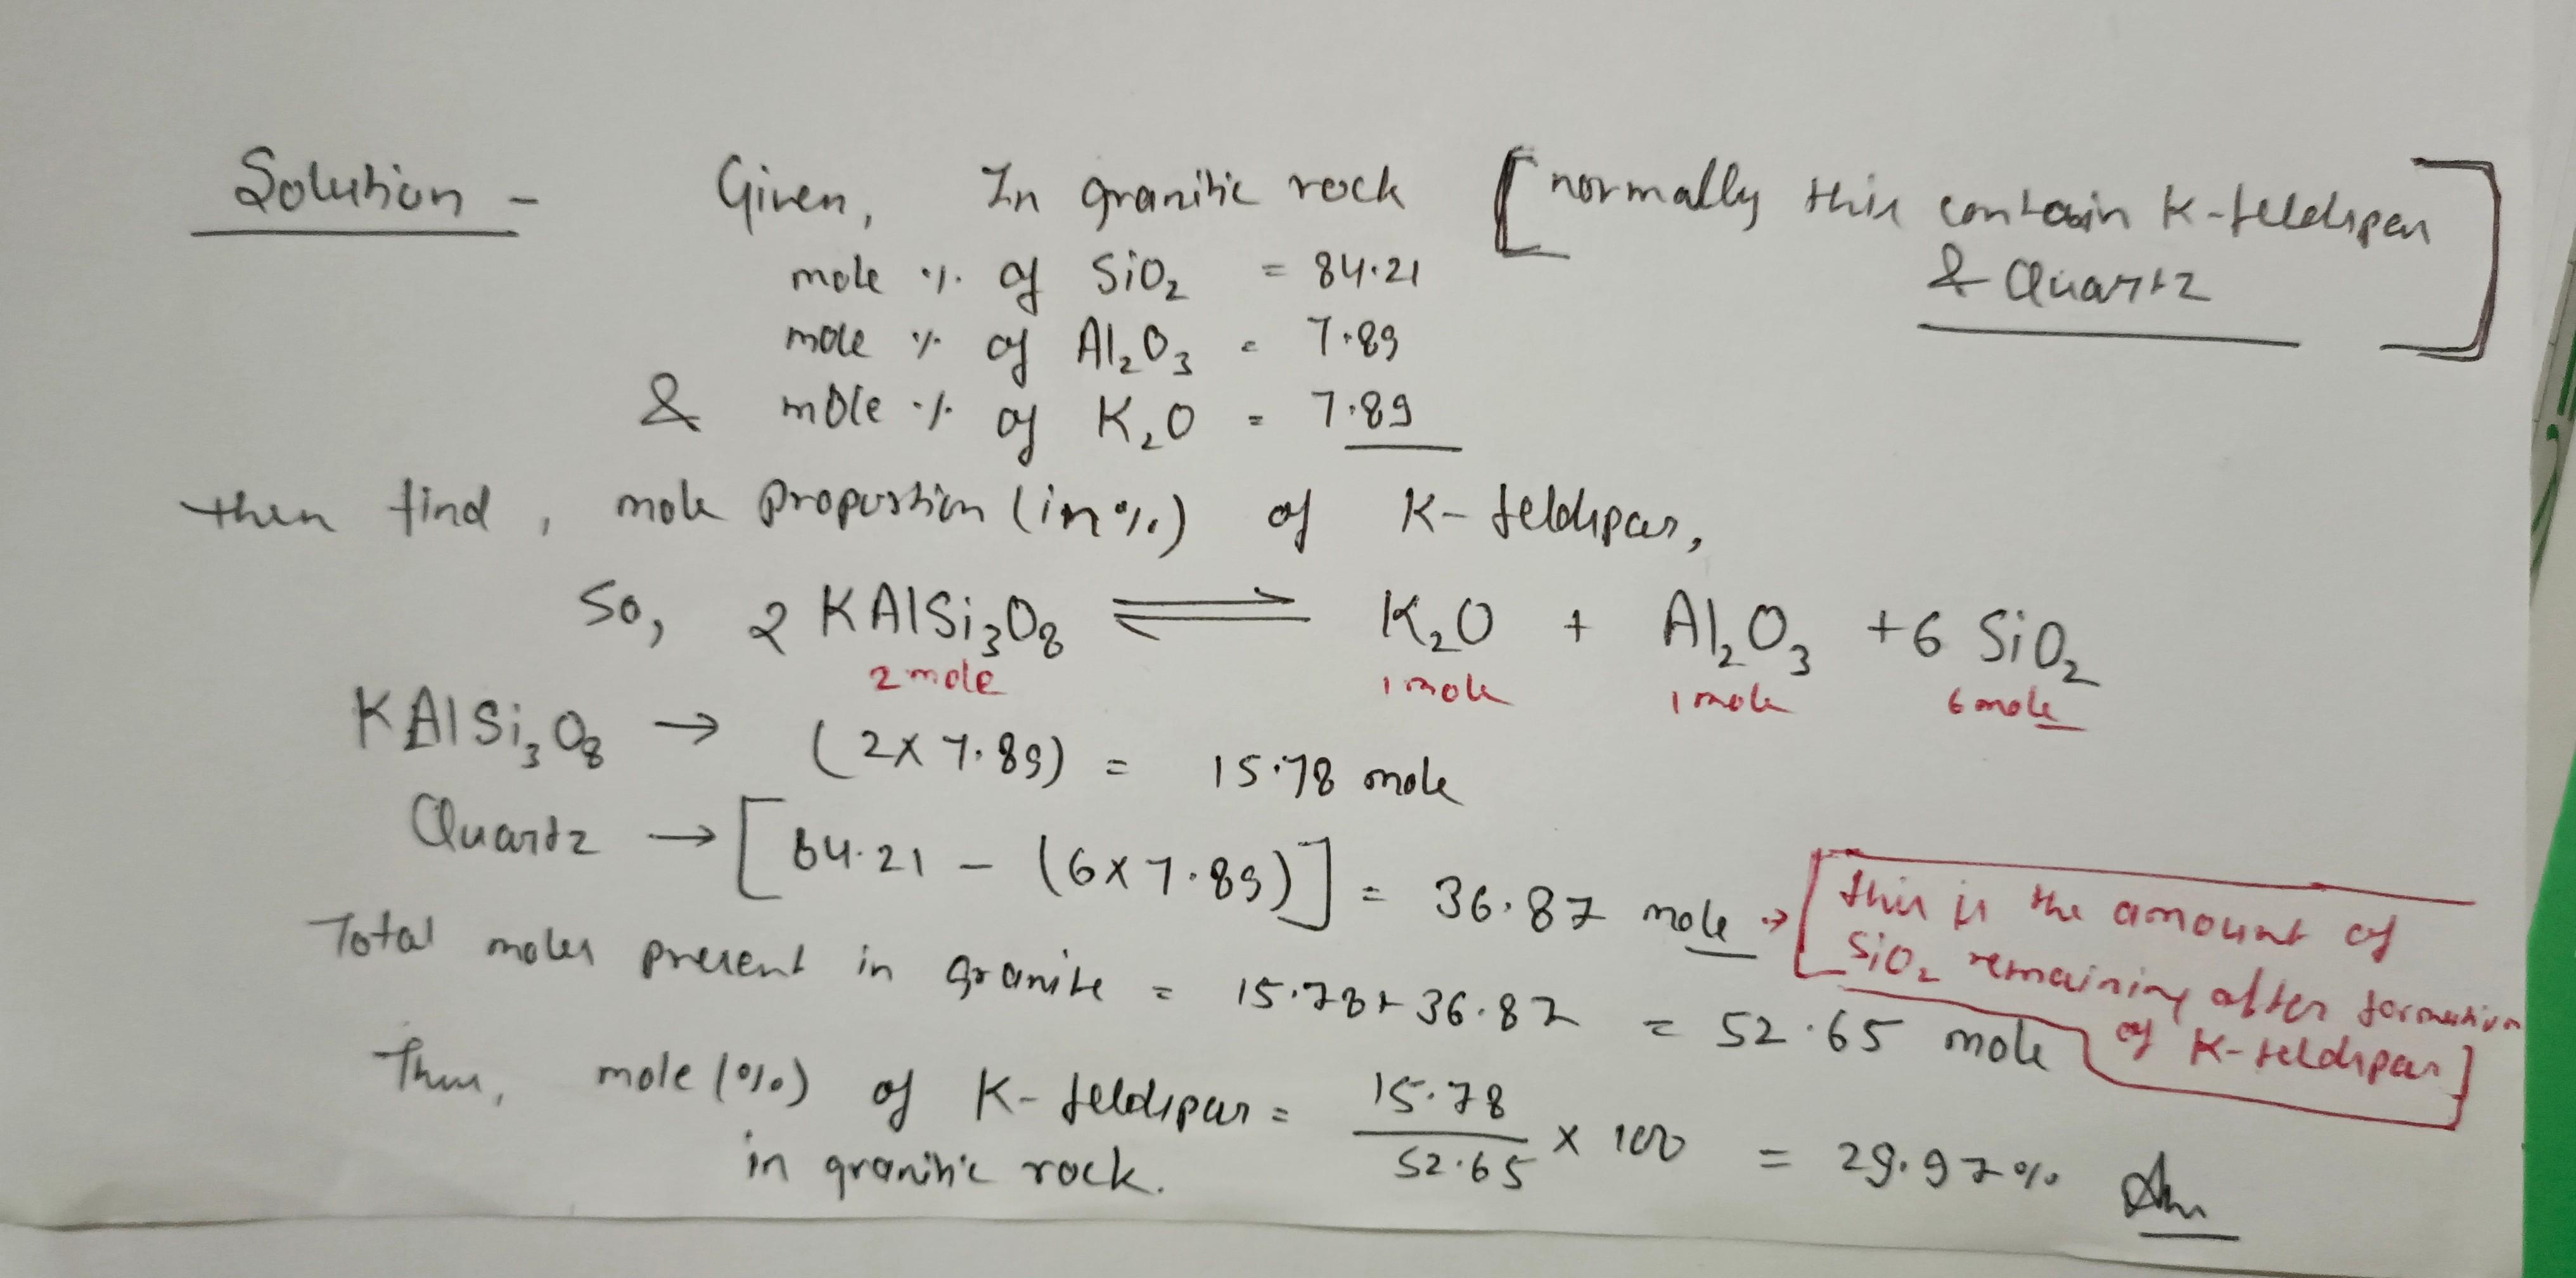 Solution - Given, In granitic rock [normally this contain K-feldspar
& Quartz]
mole % of SiO₂ = 84.21
mole % of Al₂O₃ = 7.89
& mole % of K₂O = 7.89
then find, mole proportion (in %) of K-feldspar,
So, 2 KAlSi₃O₈ ⇌ K₂O + Al₂O₃ + 6 SiO₂
2 mole 1 mole 1 mole 6 mole
KAlSi₃O₈ → (2 x 7.89) = 15.78 mole
Quartz → [84.21 - (6 x 7.89)] = 36.87 mole → [this is the amount of
SiO₂ remaining after formation
of K-feldspar]
Total moles present in granite = 15.78 + 36.87 = 52.65 mole
Thus, mole (%) of K-feldspar = 15.78/52.65 x 100 = 29.97% Ans
in granitic rock.